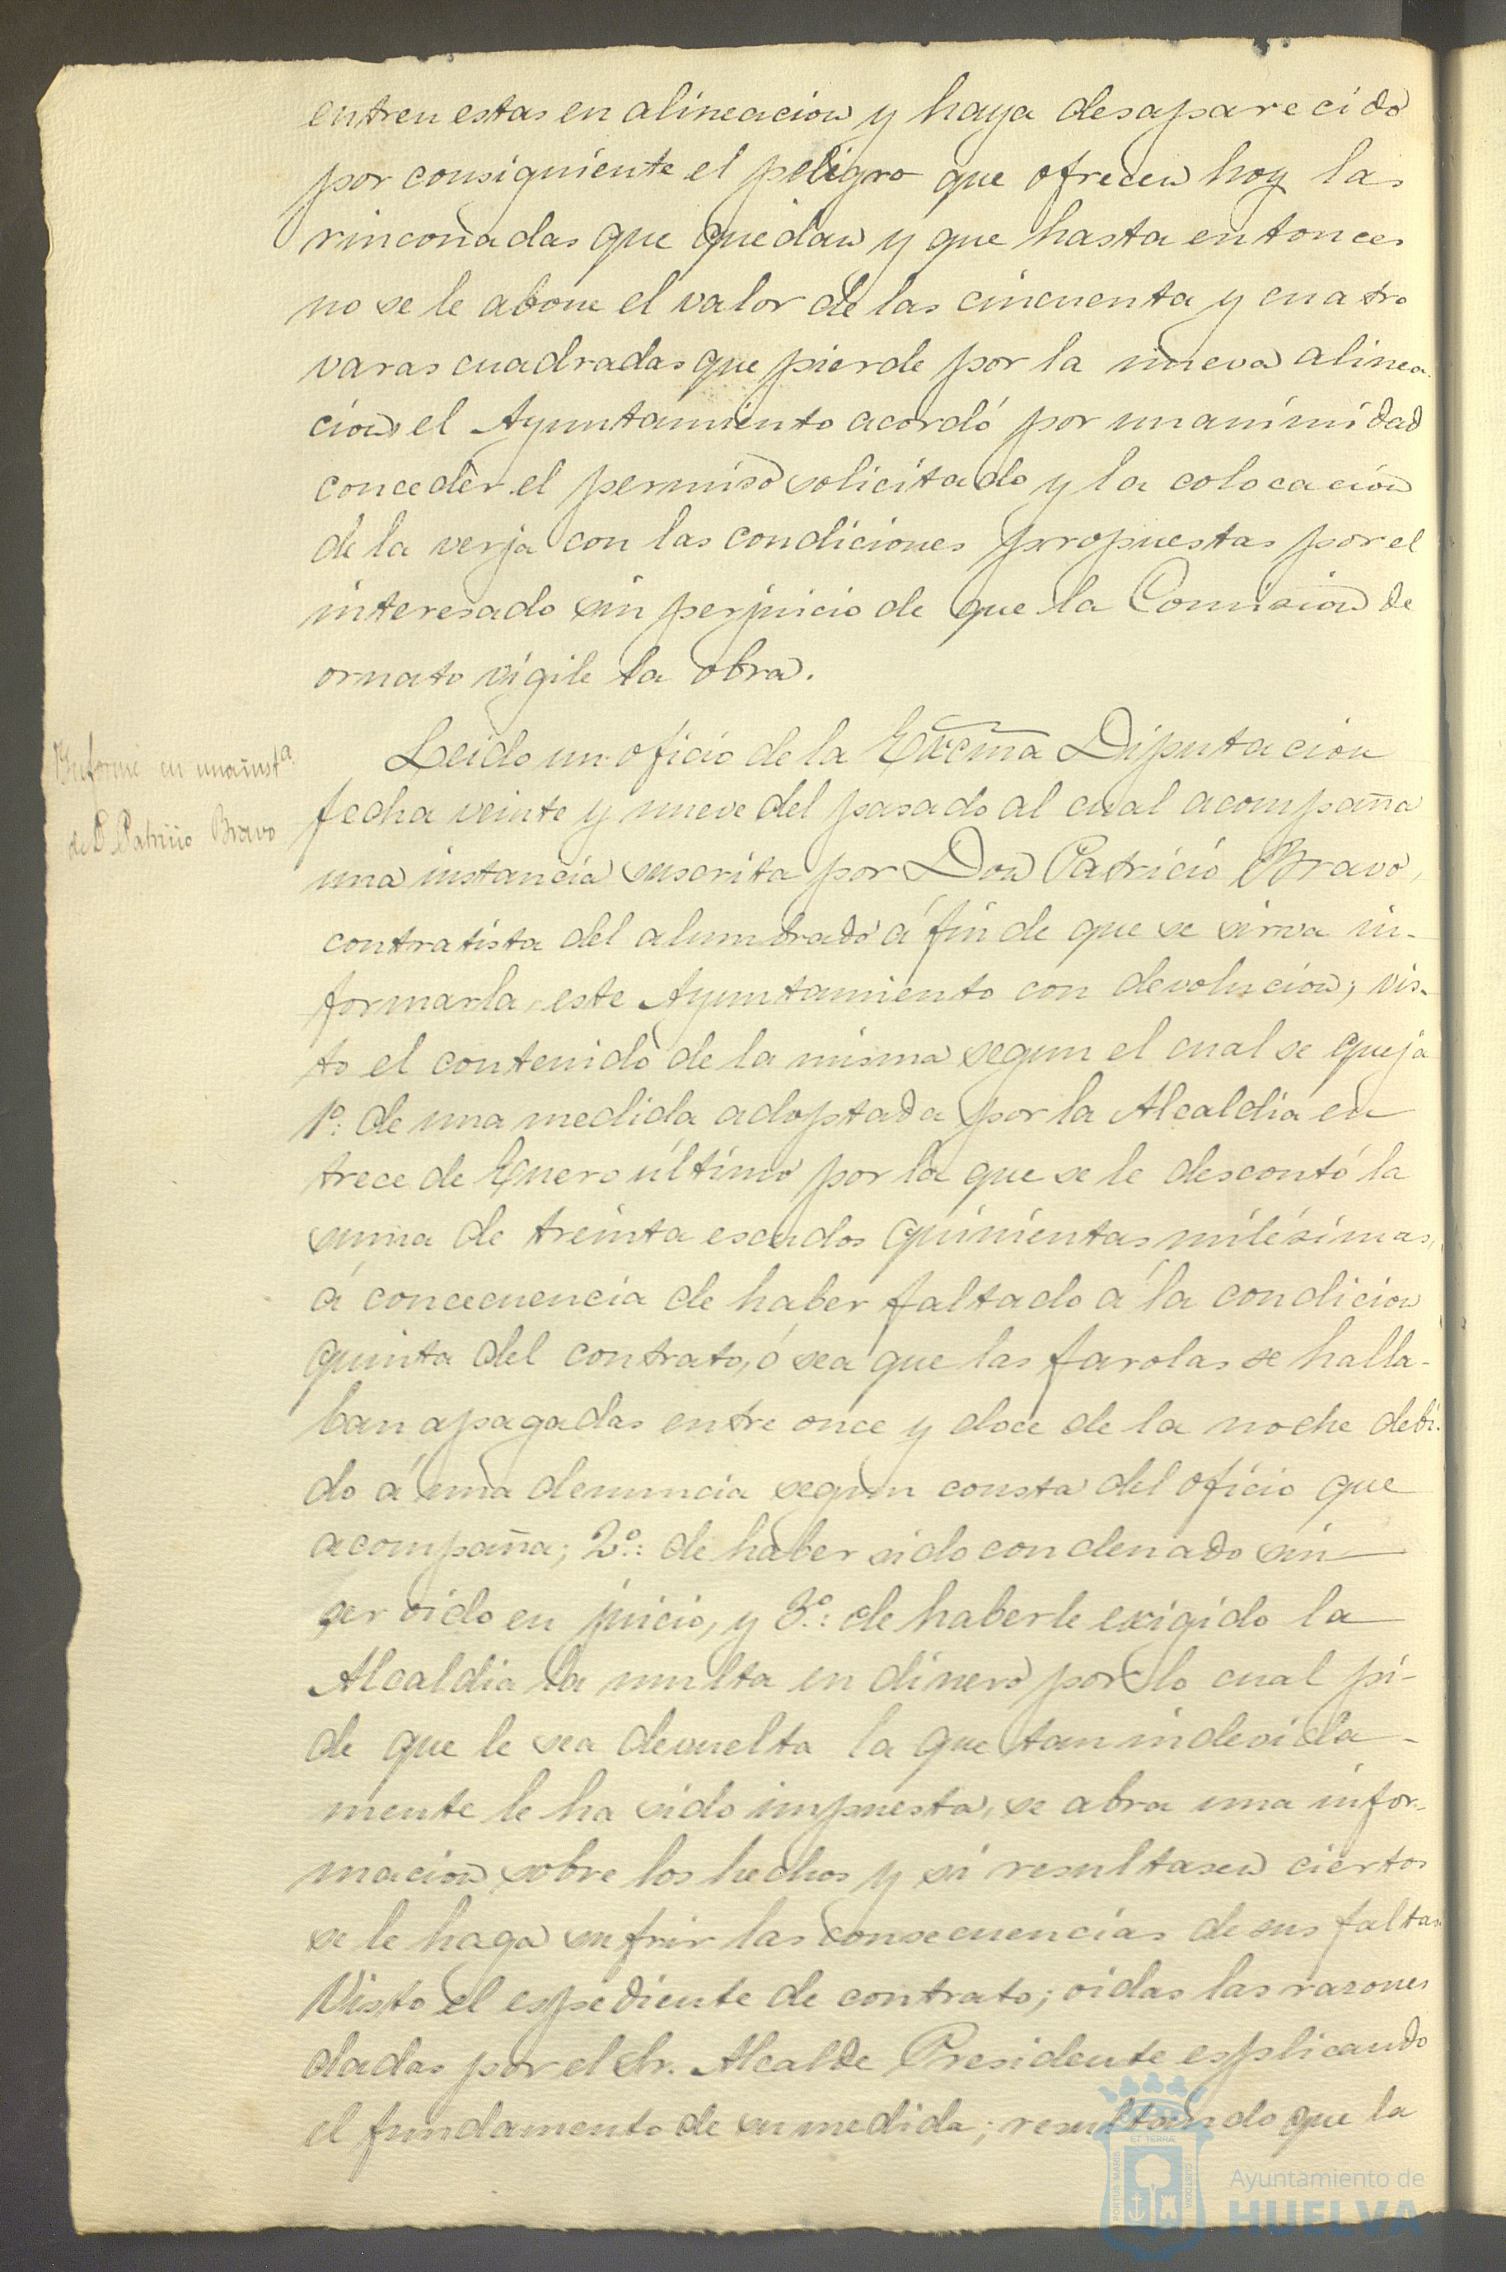 entren estas en alineacion y haya desaparecido
por consiguiente el peligro que ofrecen hoy las
rinconadas que quedan y que hasta entonces
no se le abone el valor de las cincuenta y cuatro
varas cuadradas que pierde por la nueva alinea-
cion, el Ayuntamiento acordó por unanimidad
conceder el permiso solicitado y la colocacion
de la verja con las condiciones propuestas por el
interesado sin perjuicio de que la Comision de
ornato vigile la obra.
Informe en una inst.a
de D. Patricio Bravo
Leido un oficio de la Excma Diputacion
fecha veinte y nueve del pasado al cual acompaña
una instancia suscrita por Don Patricio Bravo,
contratista del alumbrado á fin de que se sirva in-
formarla, este Ayuntamiento con devolucion; vis-
to el contenido de la misma segun el cual se queja
1º: de una medida adoptada por la Alcaldia en
trece de Enero último por la que se le descontó la
suma de treinta escudos quinientas milésimas,
á concecuencia de haber faltado á la condicion
quinta del contrato, ó sea que las farolas se halla-
ban apagadas entre once y doce de la noche debi-
do á una denuncia segun consta del oficio que
acompaña; 2º: de haber sido condenado sin
ser oido en juicio, y 3º: de haberle exigido la
Alcaldia la multa en dinero por lo cual pi-
de que le sea devuelta la que tan indevida-
mente le ha sido impuesta, se abra una infor-
macion sobre los hechos y si resultasen ciertos
se le haga sufrir las consecuencias de sus faltas.
Visto el espediente de contrato; oidas las razones
dadas por el Sr. Alcalde Presidente esplicando
el fundamento de su medida; resultando que la
PORTUS MARIS
ET TERRÆ
CUSTODIA
Ayuntamiento de
HUELVA